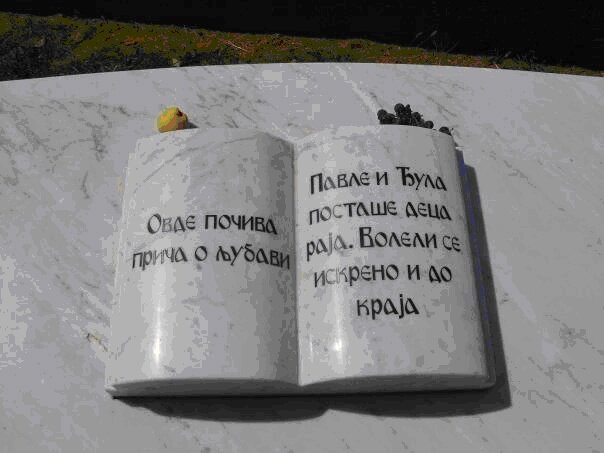 Овде почива
прича о љубави
Павле и Ђула
посташе деца
раја. Волели се
искрено и до
краја